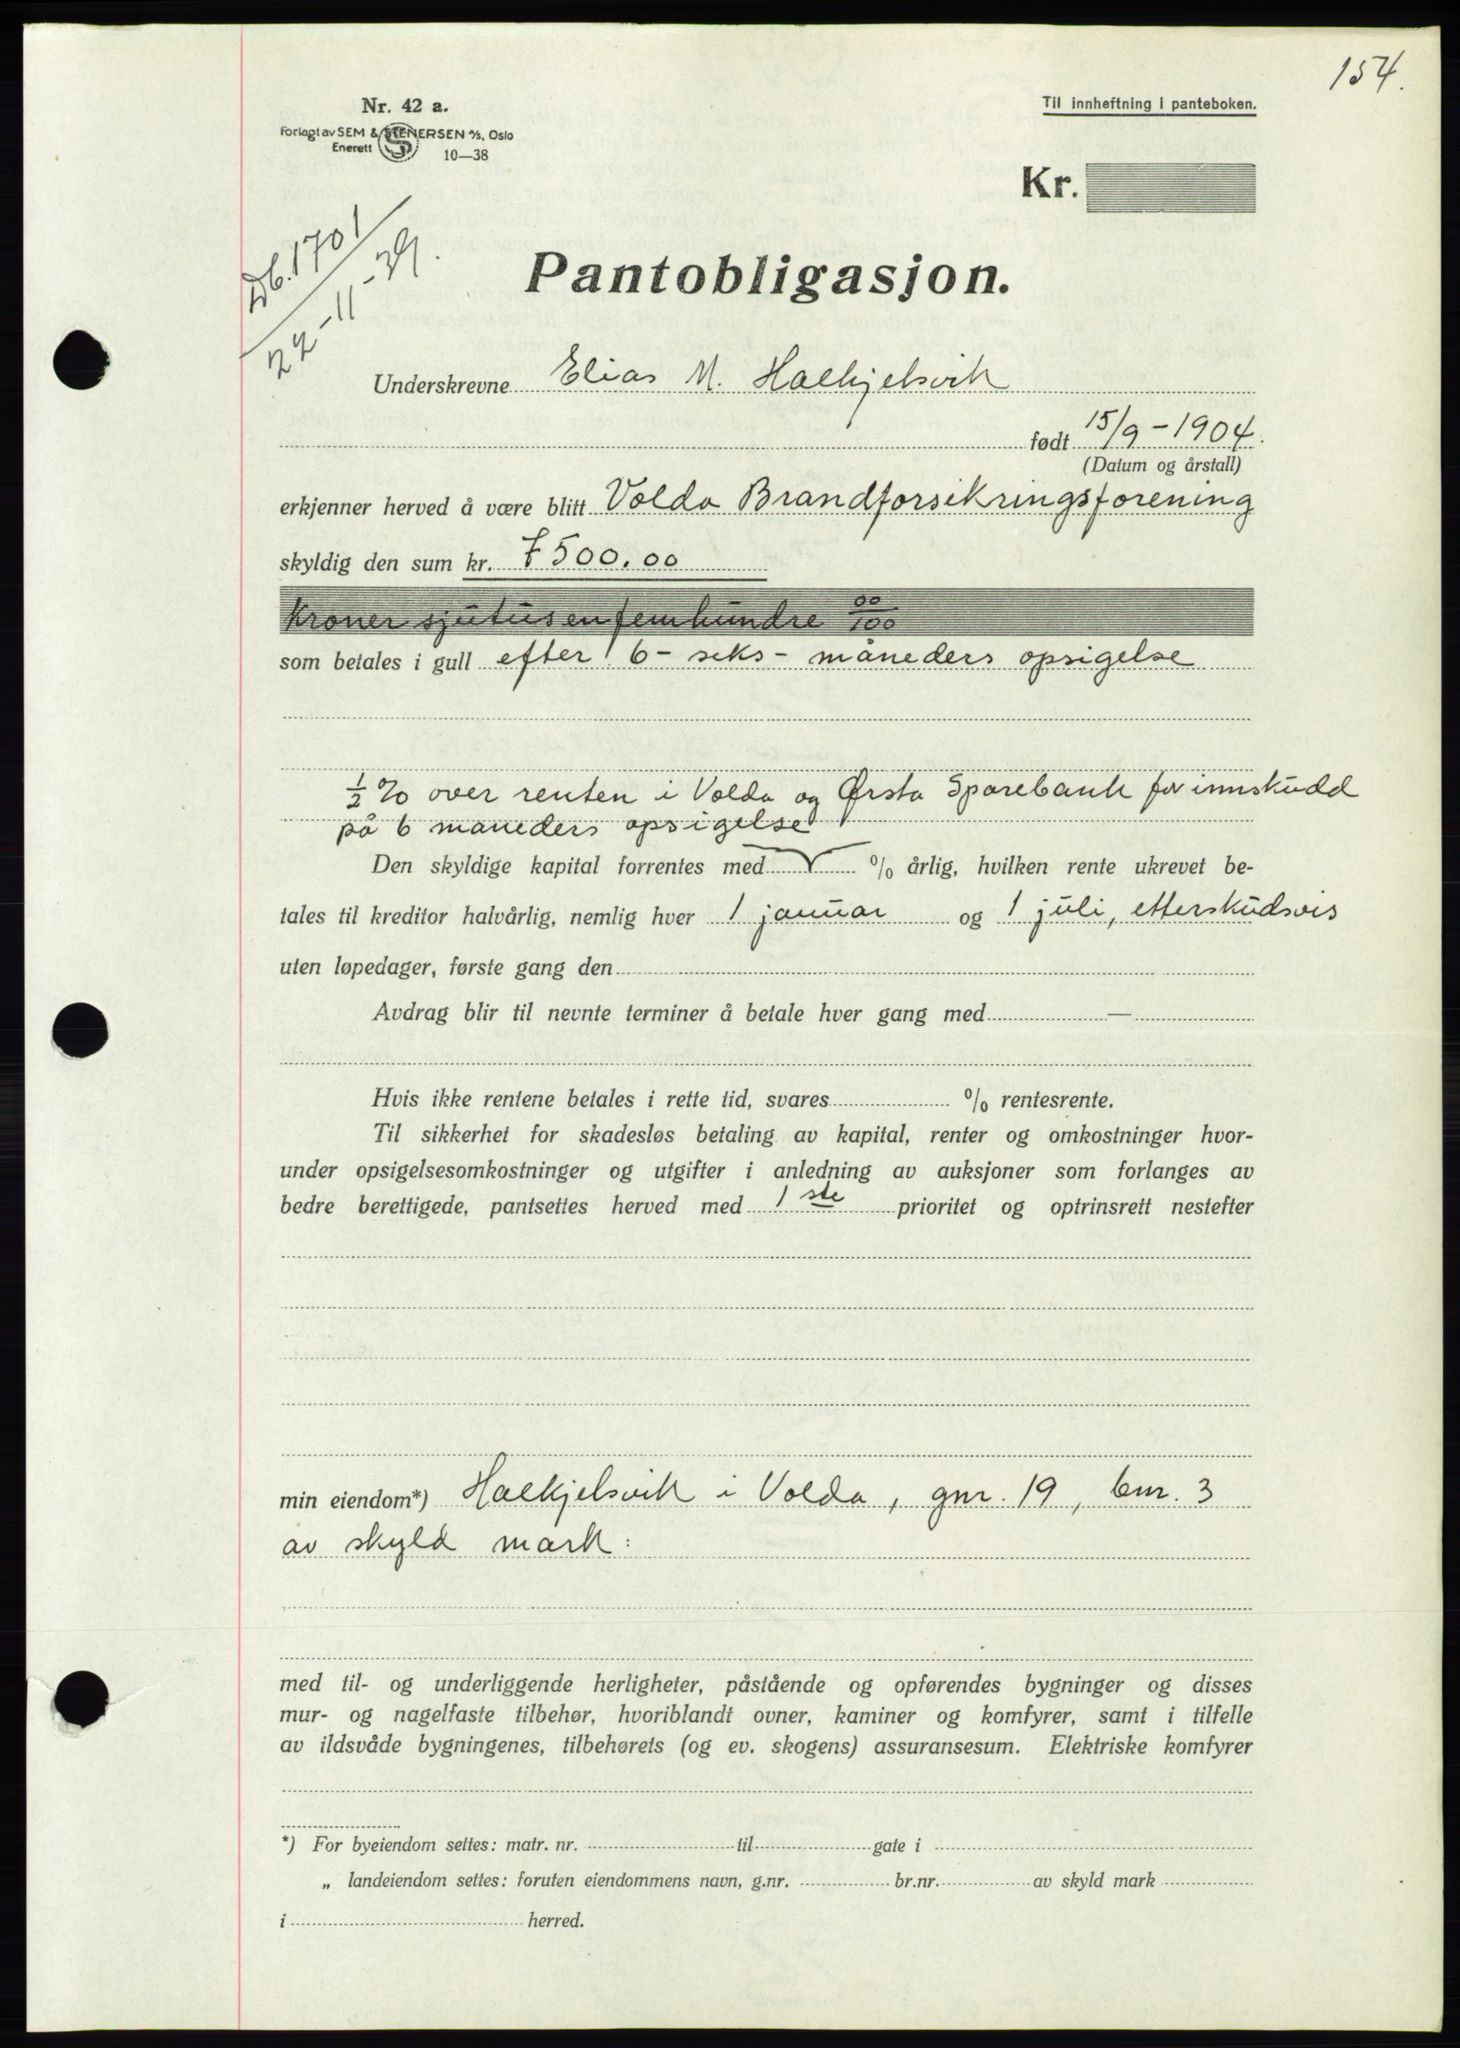 154.
Nr. 42 a.
Til innheftning i panteboken.
Forlagt av SEM & STENERSEN A/S, Oslo
Enerett
10—38
Kr.
Db. 1701
22-11-39.
Pantobligasjon.
Underskrevne Elias M. Halkjelsvik
født 15/9-1904.
(Datum og årstall)
erkjenner herved å være blitt Volda Brandforsikringsforening
skyldig den sum kr. 7500.00
Kroner sjutusenfemhundre 00/100
som betales i gull efter 6- seks- måneders opsigelse
½ % over renten i Volda og Ørsta Sparebank for innskudd
på 6 maneders opsigelse
Den skyldige kapital forrentes med % årlig, hvilken rente ukrevet be-
tales til kreditor halvårlig, nemlig hver 1 januar og 1 juli, etterskudsvis
uten løpedager, første gang den
Avdrag blir til nevnte terminer å betale hver gang med —
Hvis ikke rentene betales i rette tid, svares % rentesrente.
Til sikkerhet for skadesløs betaling av kapital, renter og omkostninger hvor-
under opsigelsesomkostninger og utgifter i anledning av auksjoner som forlanges av
bedre berettigede, pantsettes herved med 1 ste prioritet og optrinsrett nestefter
min eiendom*) Halkjelsvik i Volda, gnr. 19, bnr. 3
av skyld mark:
med til- og underliggende herligheter, påstående og opførendes bygninger og disses
mur- og nagelfaste tilbehør, hvoriblandt ovner, kaminer og komfyrer, samt i tilfelle
av ildsvåde bygningenes, tilbehørets (og ev. skogens) assuransesum. Elektriske komfyrer
*) For byeiendom settes: matr. nr. til gate i
„ landeiendom settes: foruten eiendommens navn, g.nr. br.nr. av skyld mark
i herred.